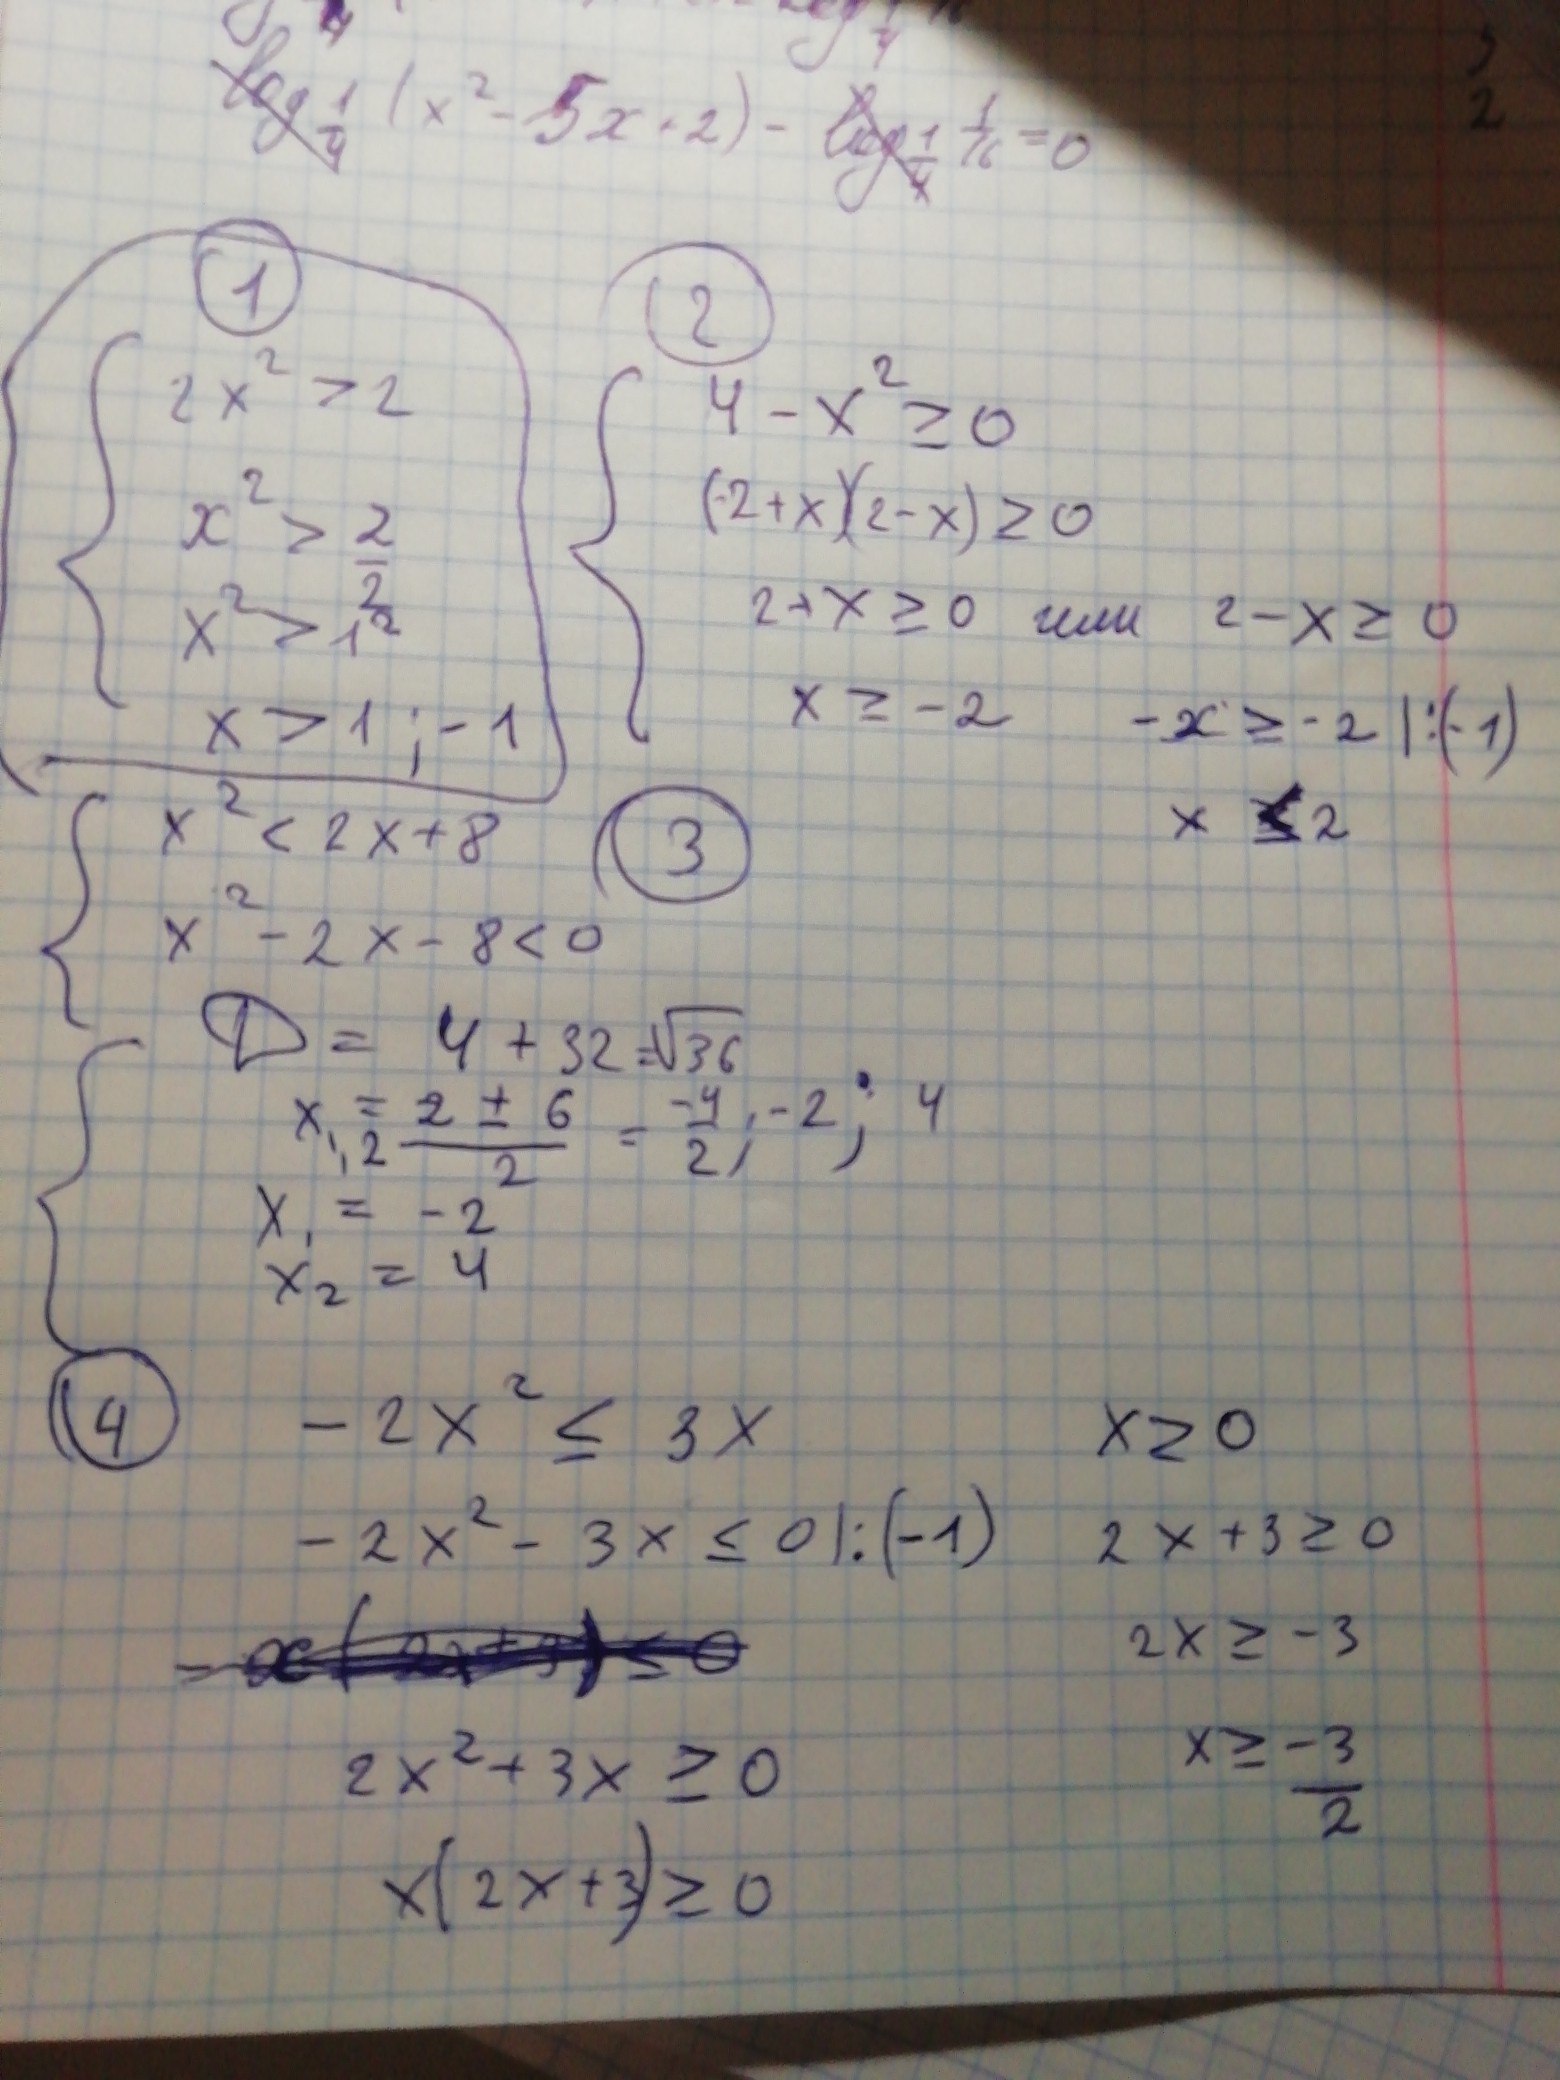 log 1/4 (x² - 5x + 2) - log 1/4 1/16 = 0
1
2x² > 2
x² > 2/2
x² > 1²
x > 1 ; -1
2
4 - x² ≥ 0
(-2+x)(2-x) ≥ 0
2+x ≥ 0 или 2-x ≥ 0
x ≥ -2 -x ≥ -2 |:(-1)
x ≤ 2
3
x² < 2x+8
x² - 2x - 8 < 0
D = 4 + 32 = √36
x₁,₂ = (2 ± 6)/2 = -4/2 ; -2 ; 4
x₁ = -2
x₂ = 4
4
-2x² ≤ 3x
-2x² - 3x ≤ 0 |:(-1)
2x² + 3x ≥ 0
x(2x+3) ≥ 0
x ≥ 0
2x+3 ≥ 0
2x ≥ -3
x ≥ -3/2